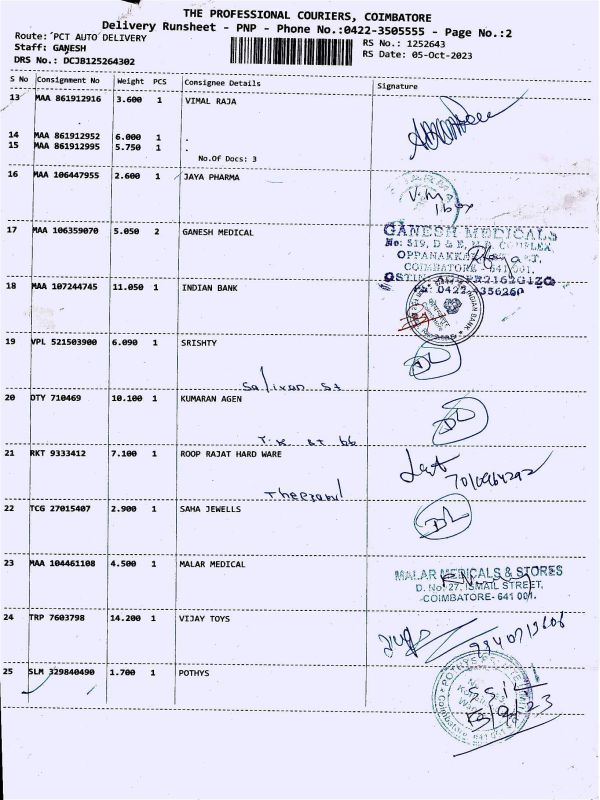 THE PROFESSIONAL COURIERS, COIMBATORE
Delivery Runsheet - PNP - Phone No.:0422-3505555 - Page No.:2
Route: PCT AUTO DELIVERY
Staff: GANESH
DRS No.: DCJB125264302
RS No.: 1252643
RS Date: 05-Oct-2023
S No Consignment No Weight PCS Consignee Details Signature
13 MAA 861912916 3.600 1 VIMAL RAJA
14 MAA 861912952 6.000 1 .
15 MAA 861912995 5.750 1 .
No.Of Docs: 3
16 MAA 106447955 2.600 1 JAYA PHARMA
17 MAA 106359070 5.050 2 GANESH MEDICAL
GANESH MEDICALS
No: 519, D & E,
OPPANAKKA
COIMBATORE - 641 001.
18 MAA 107244745 11.050 1 INDIAN BANK
INDIAN BANK
19 VPL 521503900 6.090 1 SRISHTY
DL
20 DTY 710469 10.100 1 KUMARAN AGEN
DL
21 RKT 9333412 7.100 1 ROOP RAJAT HARD WARE
22 TCG 27015407 2.900 1 SAHA JEWELLS
DL
23 MAA 104461108 4.500 1 MALAR MEDICAL
MALAR MEDICALS & STORES
D. No: 27, ISMAIL STREET,
COIMBATORE- 641 001.
24 TRP 7603798 14.200 1 VIJAY TOYS
25 SLM 329840490 1.700 1 POTHYS